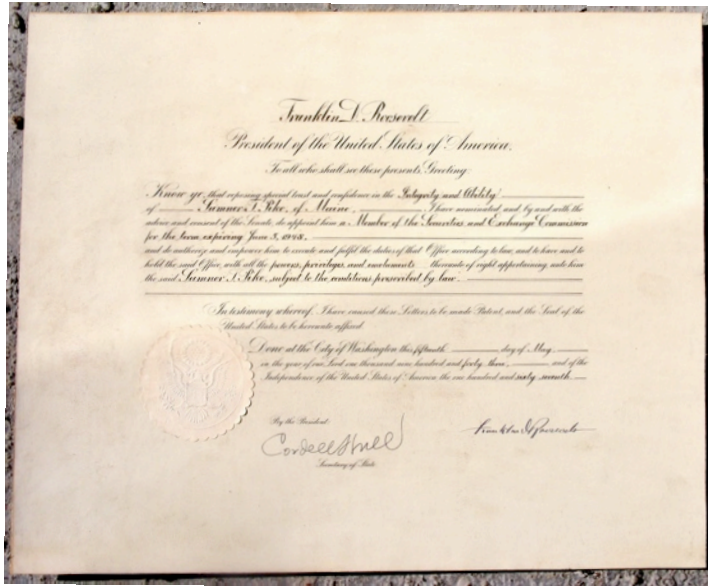 Franklin D. Roosevelt
President of the United States of America.
To all who shall see these presents, Greeting:
Know ye, that reposing special trust and confidence in the Integrity and Ability
of Sumner T. Pike, of Maine, I have nominated and, by and with the
advice and consent of the Senate, do appoint him a Member of the Securities and Exchange Commission
for the term expiring June 5, 1948,
and do authorize and empower him to execute and fulfil the duties of that Office according to law, and to have and to
hold the said Office, with all the powers, privileges, and emoluments thereunto of right appertaining, unto him
the said Sumner T. Pike, subject to the conditions prescribed by law.
In testimony whereof, I have caused these Letters to be made Patent, and the Seal of the
United States to be hereunto affixed.
Done at the City of Washington this fifteenth day of May,
in the year of our Lord one thousand nine hundred and forty three, and of the
Independence of the United States of America the one hundred and sixty seventh
By the President:
Cordell Hull
Franklin D Roosevelt
Secretary of State.